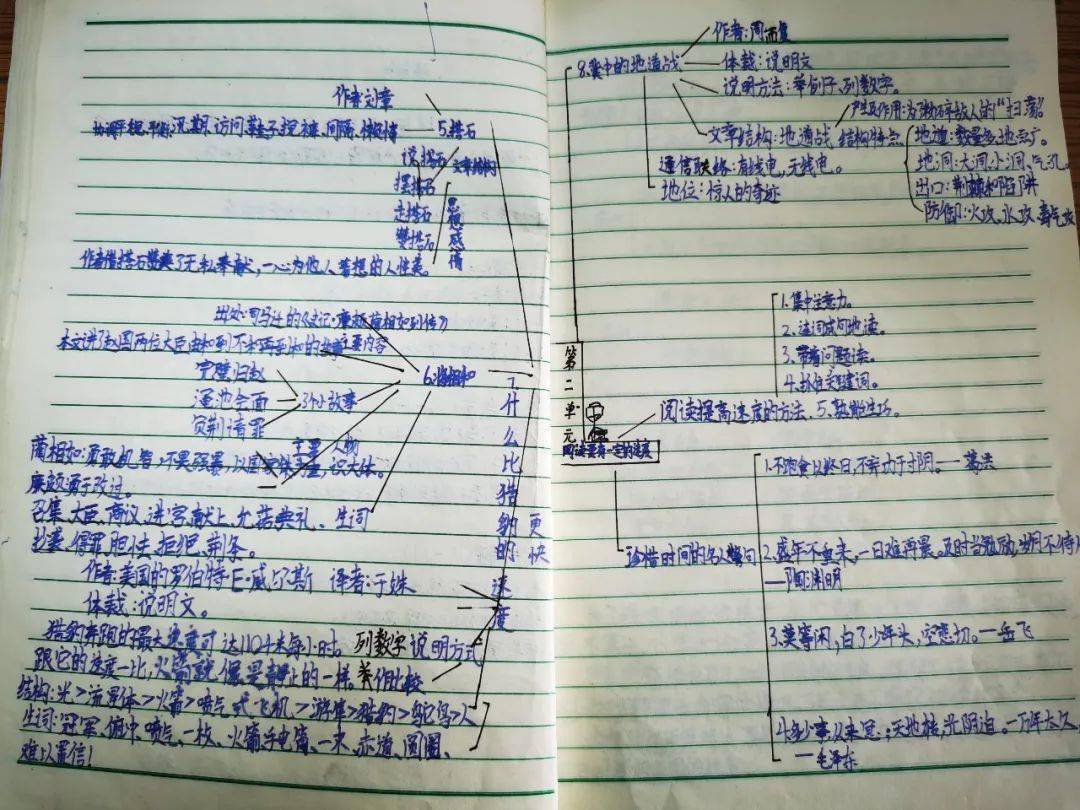 作者:刘章
5.搭石
访问
说搭石
文章结构
摆搭石
走搭石
赞搭石
思想感情
作者借搭石赞美了无私奉献,一心为他人着想的人性美。
出处:司马迁的《史记·廉颇蔺相如列传》
本文讲了赵国两位大臣由和到不和再到和的故事
主要内容
6.将相和
完璧归赵
渑池会面
负荆请罪
3个小故事
主要人物
蔺相如:勇敢机智,不畏强暴,以国家
识大体。
廉颇:勇于改过。
召集、大臣、商议、进宫、献上、允诺、典礼、
生词
得罪、胆怯、拒绝、荆条。
7.什么比猎豹的速度更快
作者:美国的罗伯特·E·威尔斯
译者:于姝
体裁:说明文。
猎豹奔跑的最大速度可达110千米每小时。
列数字
说明方式
跟它的速度一比,火箭就像是静止的一样。
作比较
结构:光>流星体>火箭>喷气式飞机>游隼>猎豹>鸵鸟>人
生词:冠军、俯冲、喷气、一枚、火箭、手电筒、一束、赤道、圆圈、
难以置信!
第二单元
阅读要有一定的速度
8.冀中的地道战
作者:周而复
体裁:说明文
说明方法:举例子、列数字。
文章结构:地道战
产生及作用:为了粉碎敌人的“扫荡”。
结构特点
地道:数量多,地点广。
地洞:大洞、小洞、气孔。
出口:荆棘和陷阱
防御:火攻、水攻、毒气攻
通信联络:有线电,无线电。
地位:惊人的奇迹
阅读提高速度的方法
1.集中注意力。
2.连词成句地读。
3.带着问题读。
4.抓住关键词。
5.熟能生巧。
珍惜时间的名人警句
1.不饱食以终日,不弃功于寸阴。——葛洪
2.盛年不重来,一日难再晨。及时当勉励,岁月不待人
——陶渊明
3.莫等闲,白了少年头,空悲切。——岳飞
4.多少事,从来急;天地转,光阴迫。一万年太久
——毛泽东